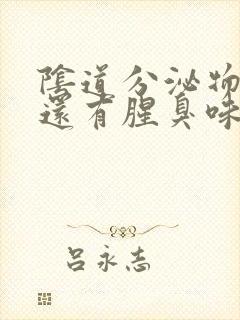 陰道分泌物
還有腥臭味
呂永志